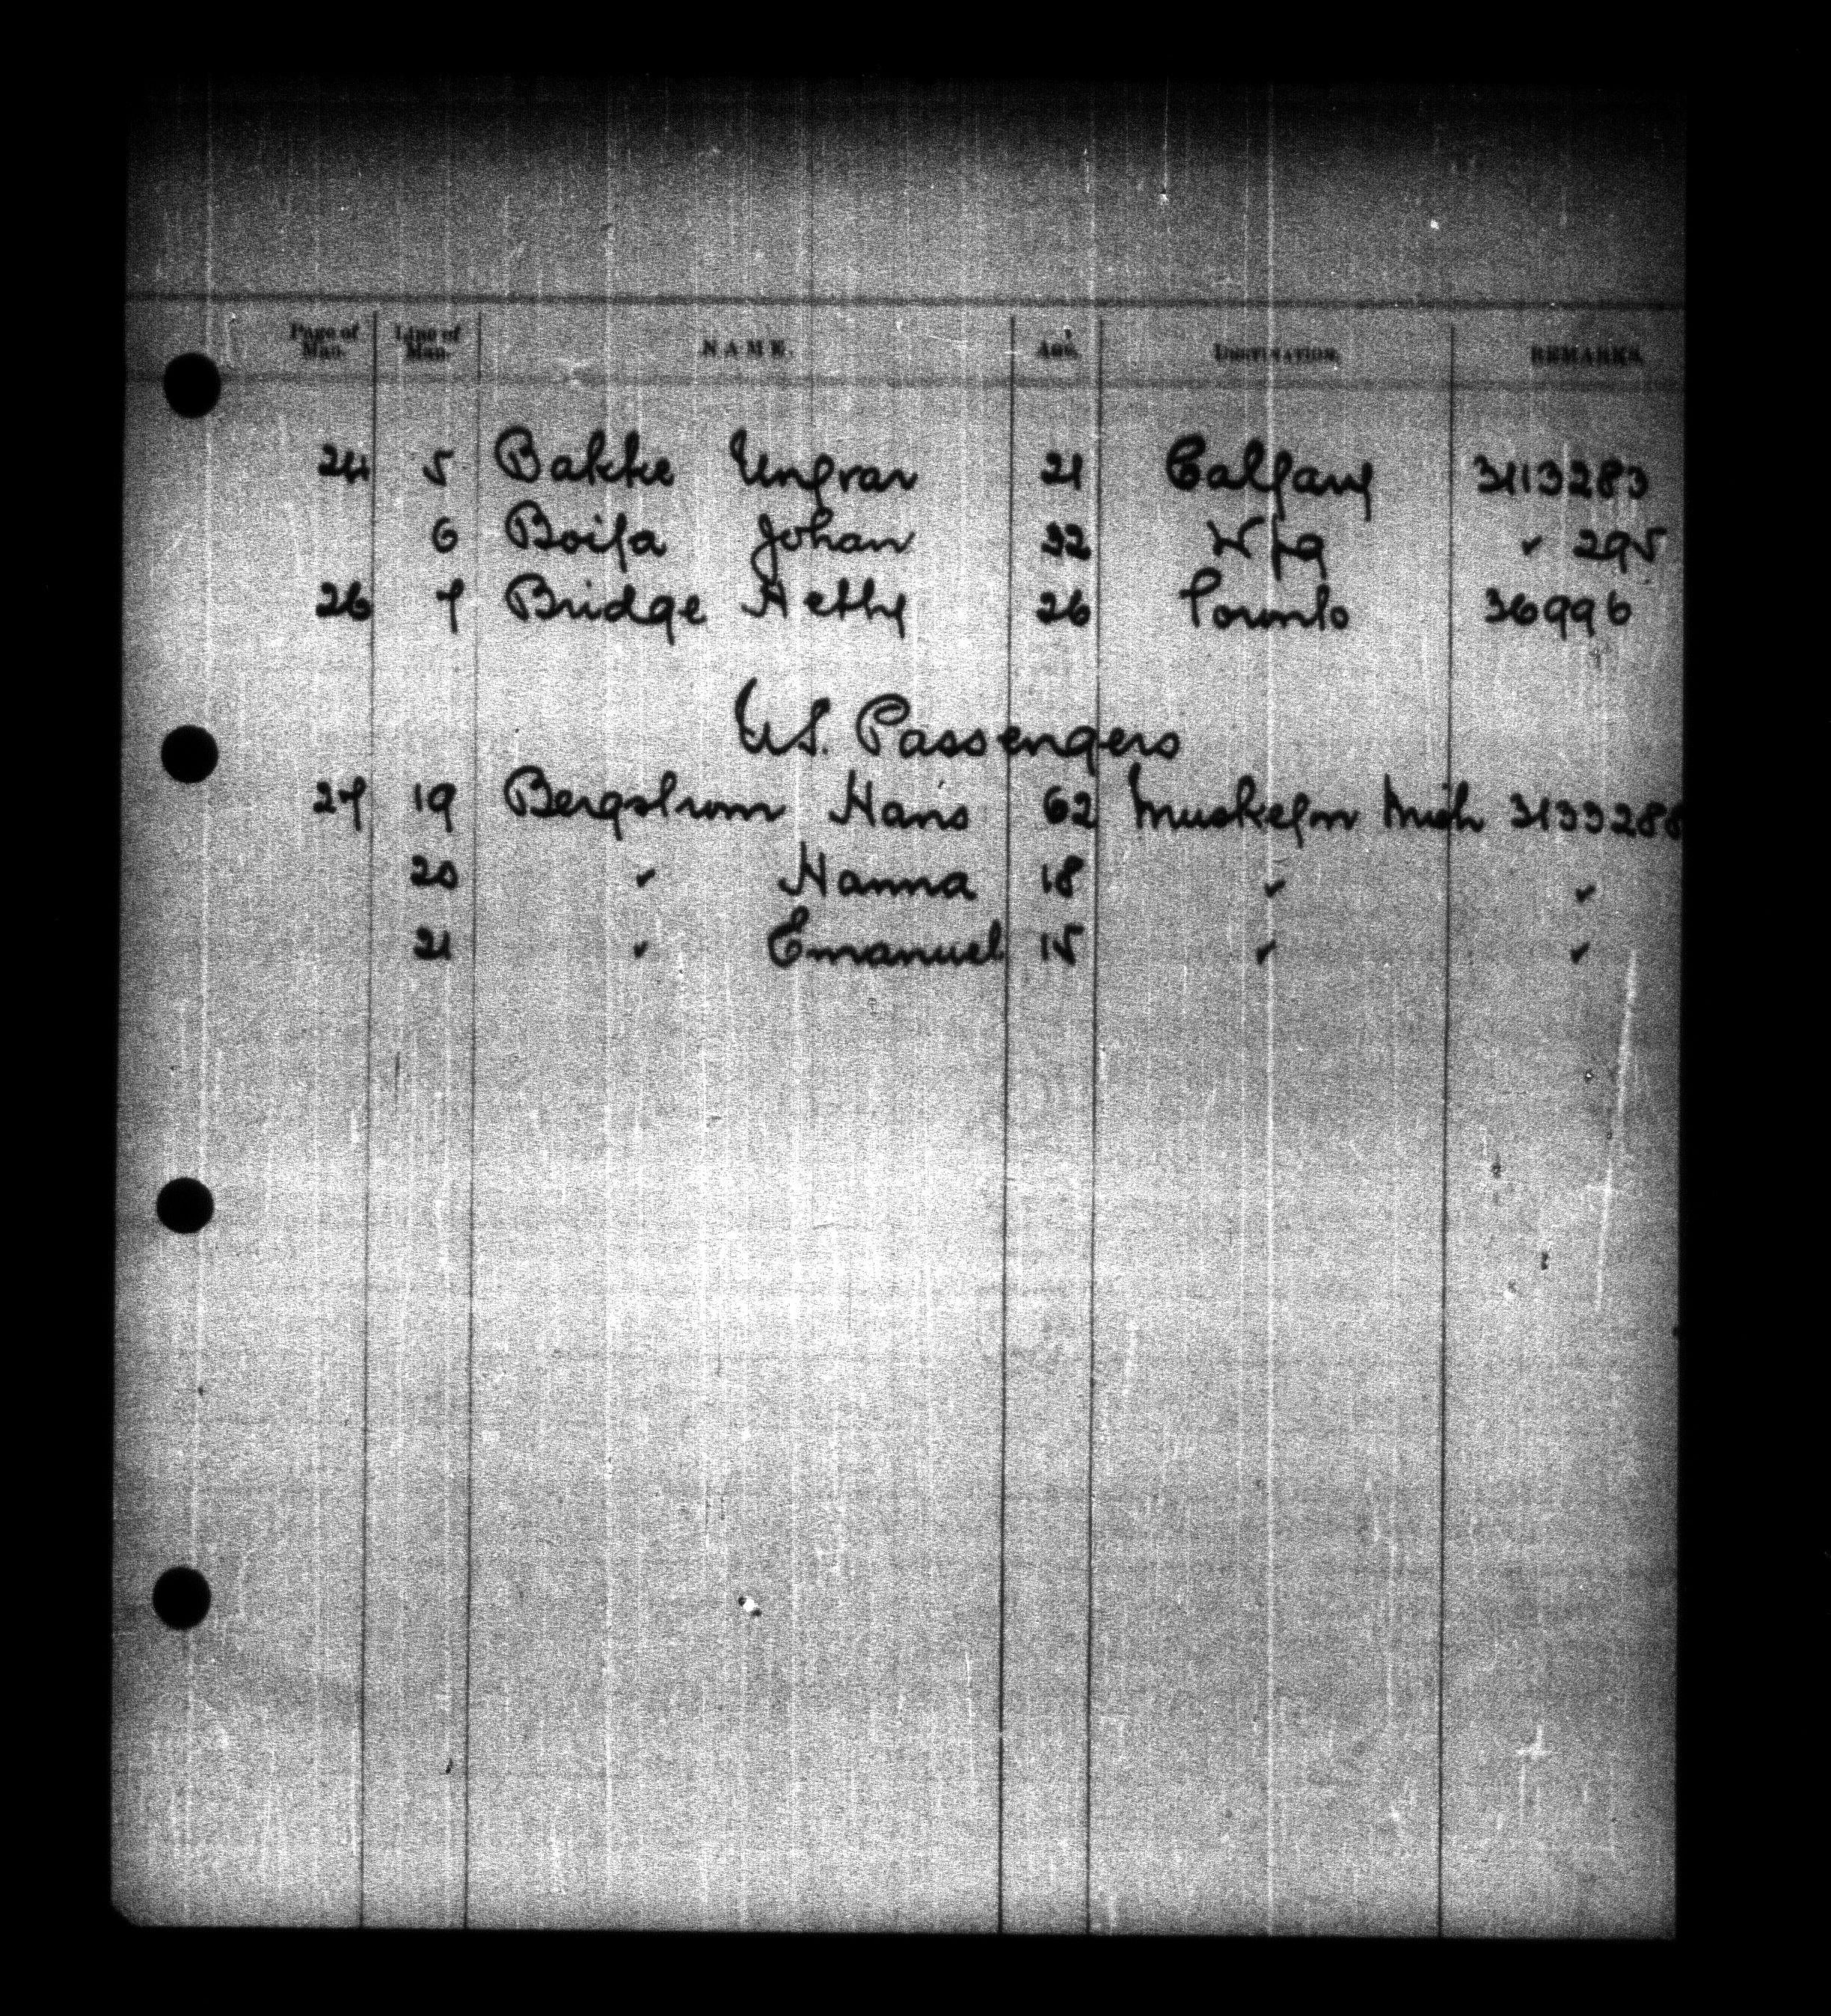 Page of Man. Line of Man. NAME. AGE. DESTINATION. REMARKS.
24 5 Bakke Ungvar 21 Calgary 3113283
6 Boija Johan 32 Wpg " 295
26 7 Bridge Hetty 26 Toronto 36996
U.S. Passengers
27 19 Bergstrom Hans 62 Muskegon Mich 3133288
20 " Hanna 18 " "
21 " Emanuel 15 " "